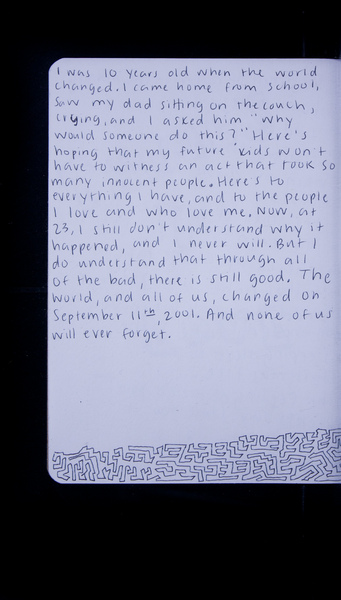 I was 10 years old when the world
changed. I came home from school,
saw my dad sitting on the couch,
crying, and I asked him "why
would someone do this?" Here's
hoping that my future kids won't
have to witness an act that took so
many innocent people. Here's to
everything I have, and to the people
I love and who love me. Now, at
23, I still don't understand why it
happened, and I never will. But I
do understand that through all
of the bad, there is still good. The
world, and all of us, changed on
September 11th, 2001. And none of us
will ever forget.